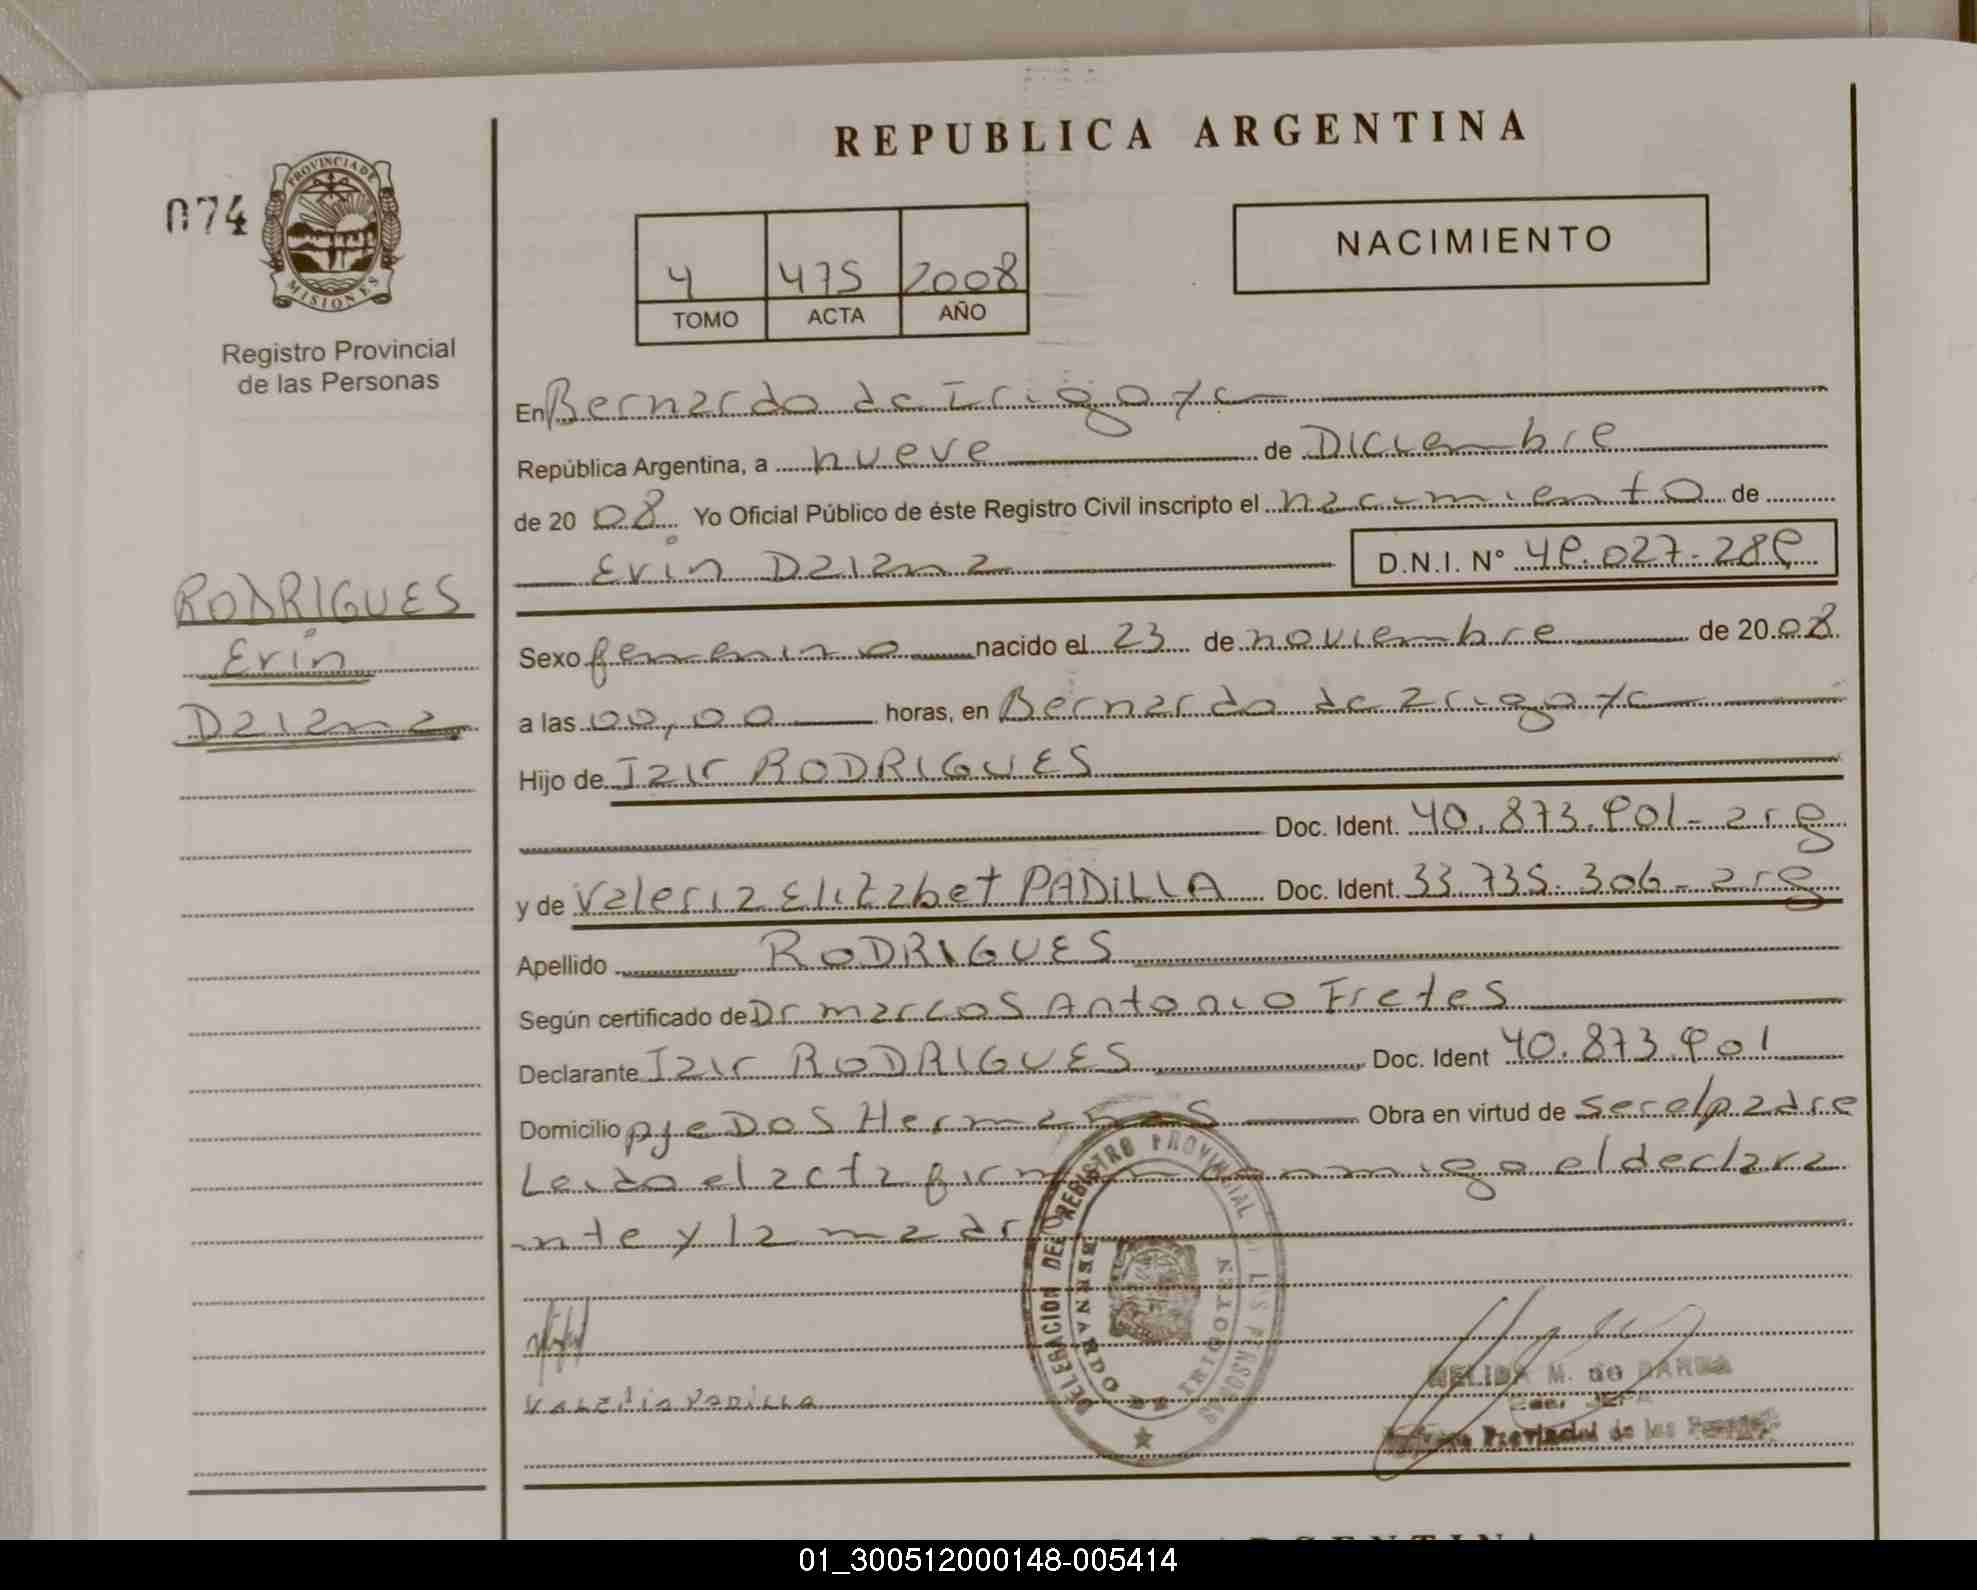 REPUBLICA ARGENTINA
074
PROVINCIA DE
MISIONES
Registro Provincial
de las Personas
4 475 2008
TOMO ACTA AÑO
NACIMIENTO
En Bernardo de Irigoye
República Argentina, a nueve de Diciembre
de 20 08 Yo Oficial Público de éste Registro Civil inscripto el nacimiento de
Erin Daiana D.N.I. N° 49.027.289
RODRIGUES
Erin
Daiana
Sexo femenino nacido el 23 de noviembre de 20 08
a las 00,00 horas, en Bernardo de irigoye
Hijo de Jair RODRIGUES
Doc. Ident. 40.873.901 - arg
y de Valeria Elizabet PADILLA Doc. Ident. 33.735.306 - arg
Apellido RODRIGUES
Según certificado de Dr marcos Antonio Fretes
Declarante Jair RODRIGUES Doc. Ident 40.873.901
Domicilio pje DOS Hermanas Obra en virtud de ser el padre
Leido el acta firman conmigo el declara
nte y la madr
DELEGACION DEL REGISTRO PROVINCIAL DE LAS PERSONAS
BERNARDO DE IRIGOYEN
VALERIA PADILLA
NELIDA M. de
Provincial de las
ARGENTINA
01_300512000148-005414